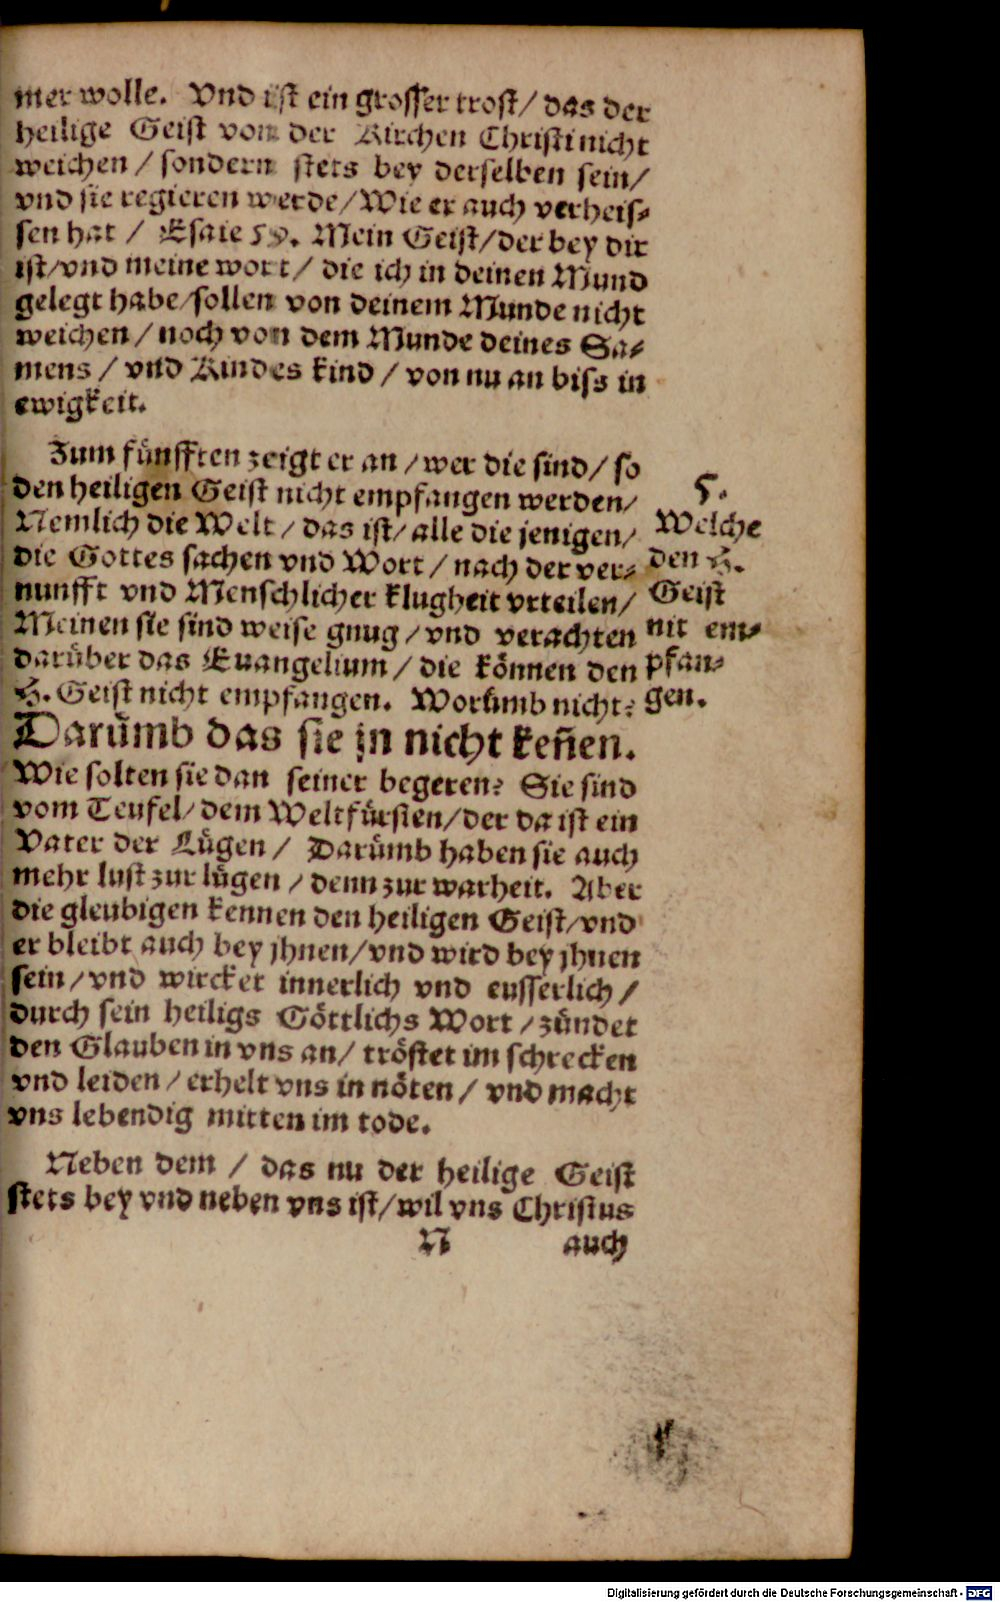 mer wolle. Vnd ist ein grosser trost/ das der
heilige Geist von der Kirchen Christi nicht
weichen / sondern stets bey derselben sein/
vnd sie regieren werde/ Wie er auch verheis⸗
sen hat / Esaie 59. Mein Geist/ der bey dir
ist/ vnd meine wort / die ich in deinen Mund
gelegt habe/ sollen von deinem Munde nicht
weichen / noch von dem Munde deines Sa⸗
mens / vnd Kindes kind / von nu an biss in
ewigkeit.
Zum fünfften zeigt er an / wer die sind/ so
den heiligen Geist nicht empfangen werden/
Nemlich die Welt / das ist/ alle die jenigen/
die Gottes sachen vnd Wort / nach der ver⸗
nunfft vnd Menschlicher klugheit vrteilen/
Meinen sie sind weise gnug / vnd verachten
darüber das Euangelium / die können den
H. Geist nicht empfangen. Worümb nicht?
Darümb das sie jn nicht keñen.
Wie solten sie dan seiner begeren? Sie sind
vom Teufel/ dem Weltfürsten/ der da ist ein
Vater der Lügen / Darümb haben sie auch
mehr lust zur lügen / denn zur warheit. Aber
die gleubigen kennen den heiligen Geist/ vnd
er bleibt auch bey jhnen/ vnd wird bey jhnen
sein / vnd wircket innerlich vnd eusserlich /
durch sein heiligs Göttlichs Wort / zündet
den Glauben in vns an/ tröstet im schrecken
vnd leiden / erhelt vns in nöten / vnd macht
vns lebendig mitten im tode.
Neben dem / das nu der heilige Geist
stets bey vnd neben vns ist/ wil vns Christus
N auch
5.
Welche
den H.
Geist
nit em⸗
pfan⸗
gen.
Digitalisierung gefördert durch die Deutsche Forschungsgemeinschaft - DFG